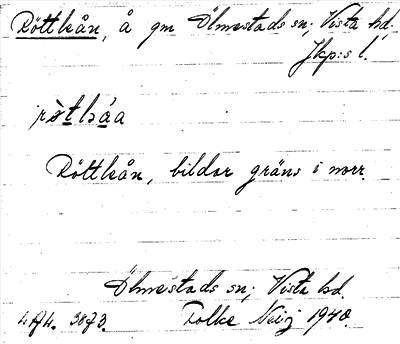 Röttleån, å gm Ölmestads sn; Vista hd.
Jkp:s l.
Röttleån, bildar gräns i norr.
Ölmestads sn; Vista hd.
Folke 1940.